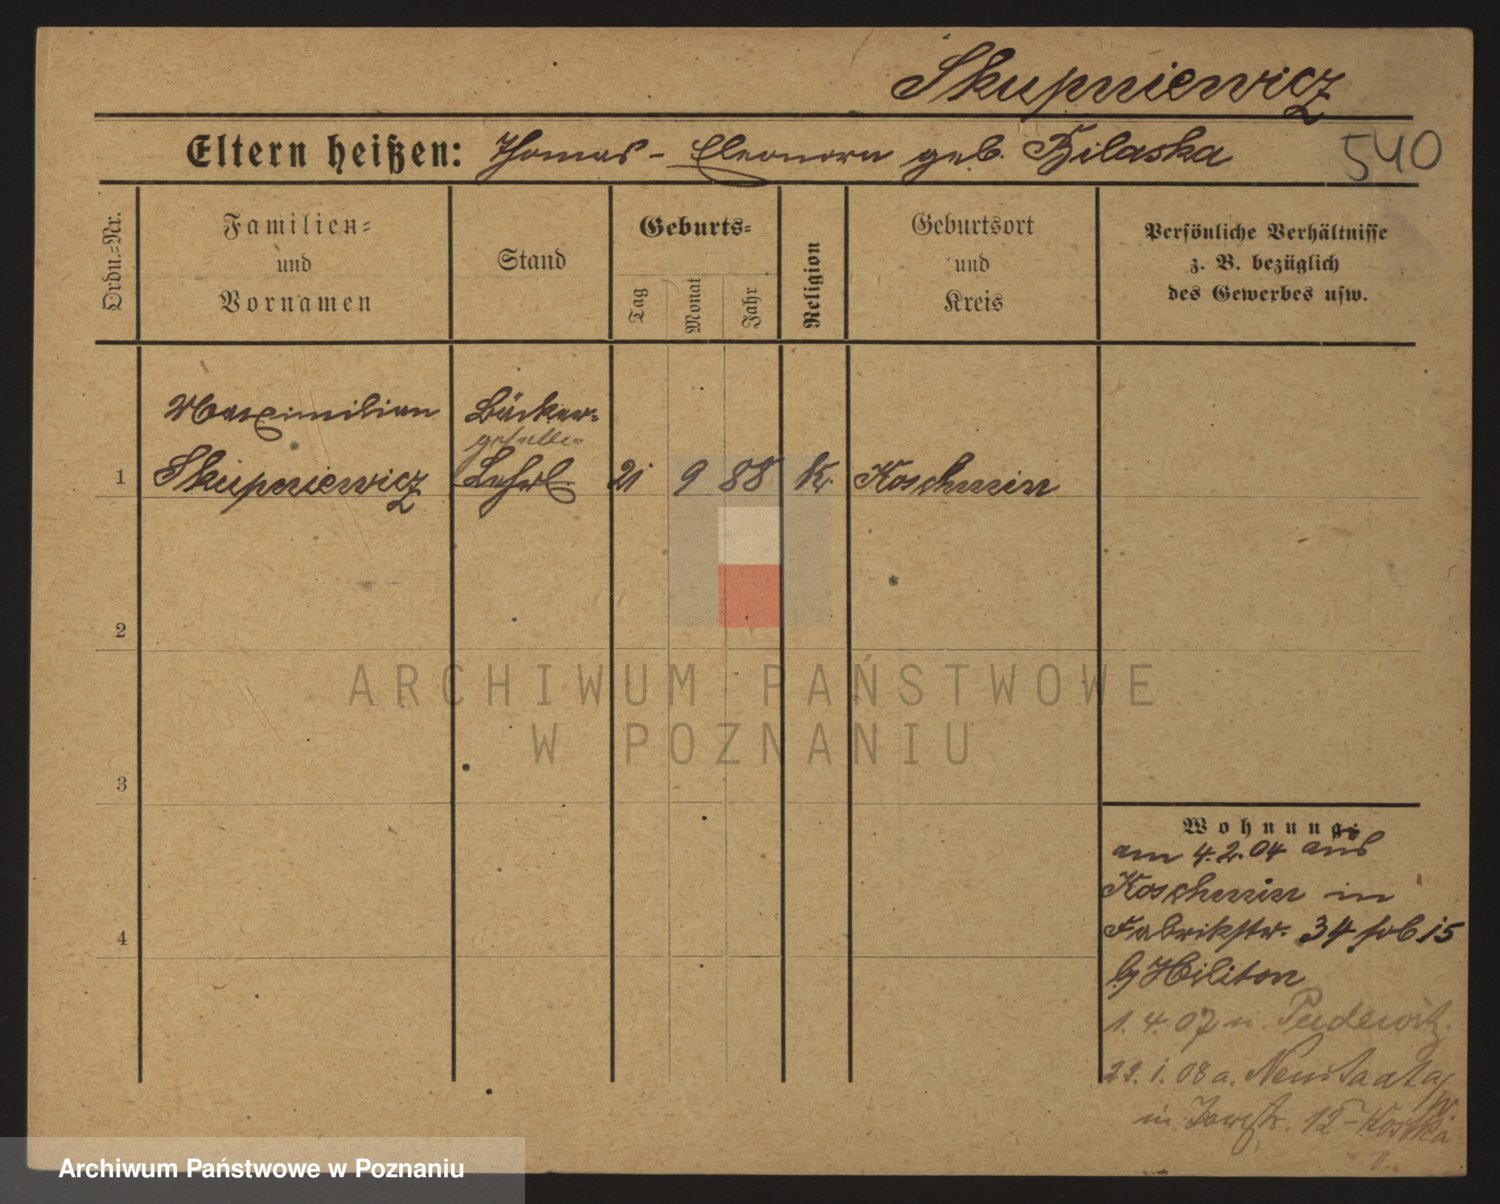 Skupniewicz
Eltern heißen: Thomas - Eleonora geb. Bilaska
540
Ordn.-Nr.
Familien-
und
Vornamen
Stand
Geburts-
Tag
Monat
Jahr
Religion
Geburtsort
und
Kreis
Persönliche Verhältnisse
z. B. bezüglich
des Gewerbes usw.
Maximilian
Skupniewicz
Bäcker-
geselle
Lehrl.
1
21 9 88 K. Koschmin
2
3
4
Wohnung:
am 4.2.04 aus
Koschmin in
Fabrikstr. 34 15
b/
1.4.07 n. Pudewitz.
1.08 a. Neustadt a/W
in 12 - Kostka
ARCHIWUM PAŃSTWOWE
W POZNANIU
Archiwum Państwowe w Poznaniu